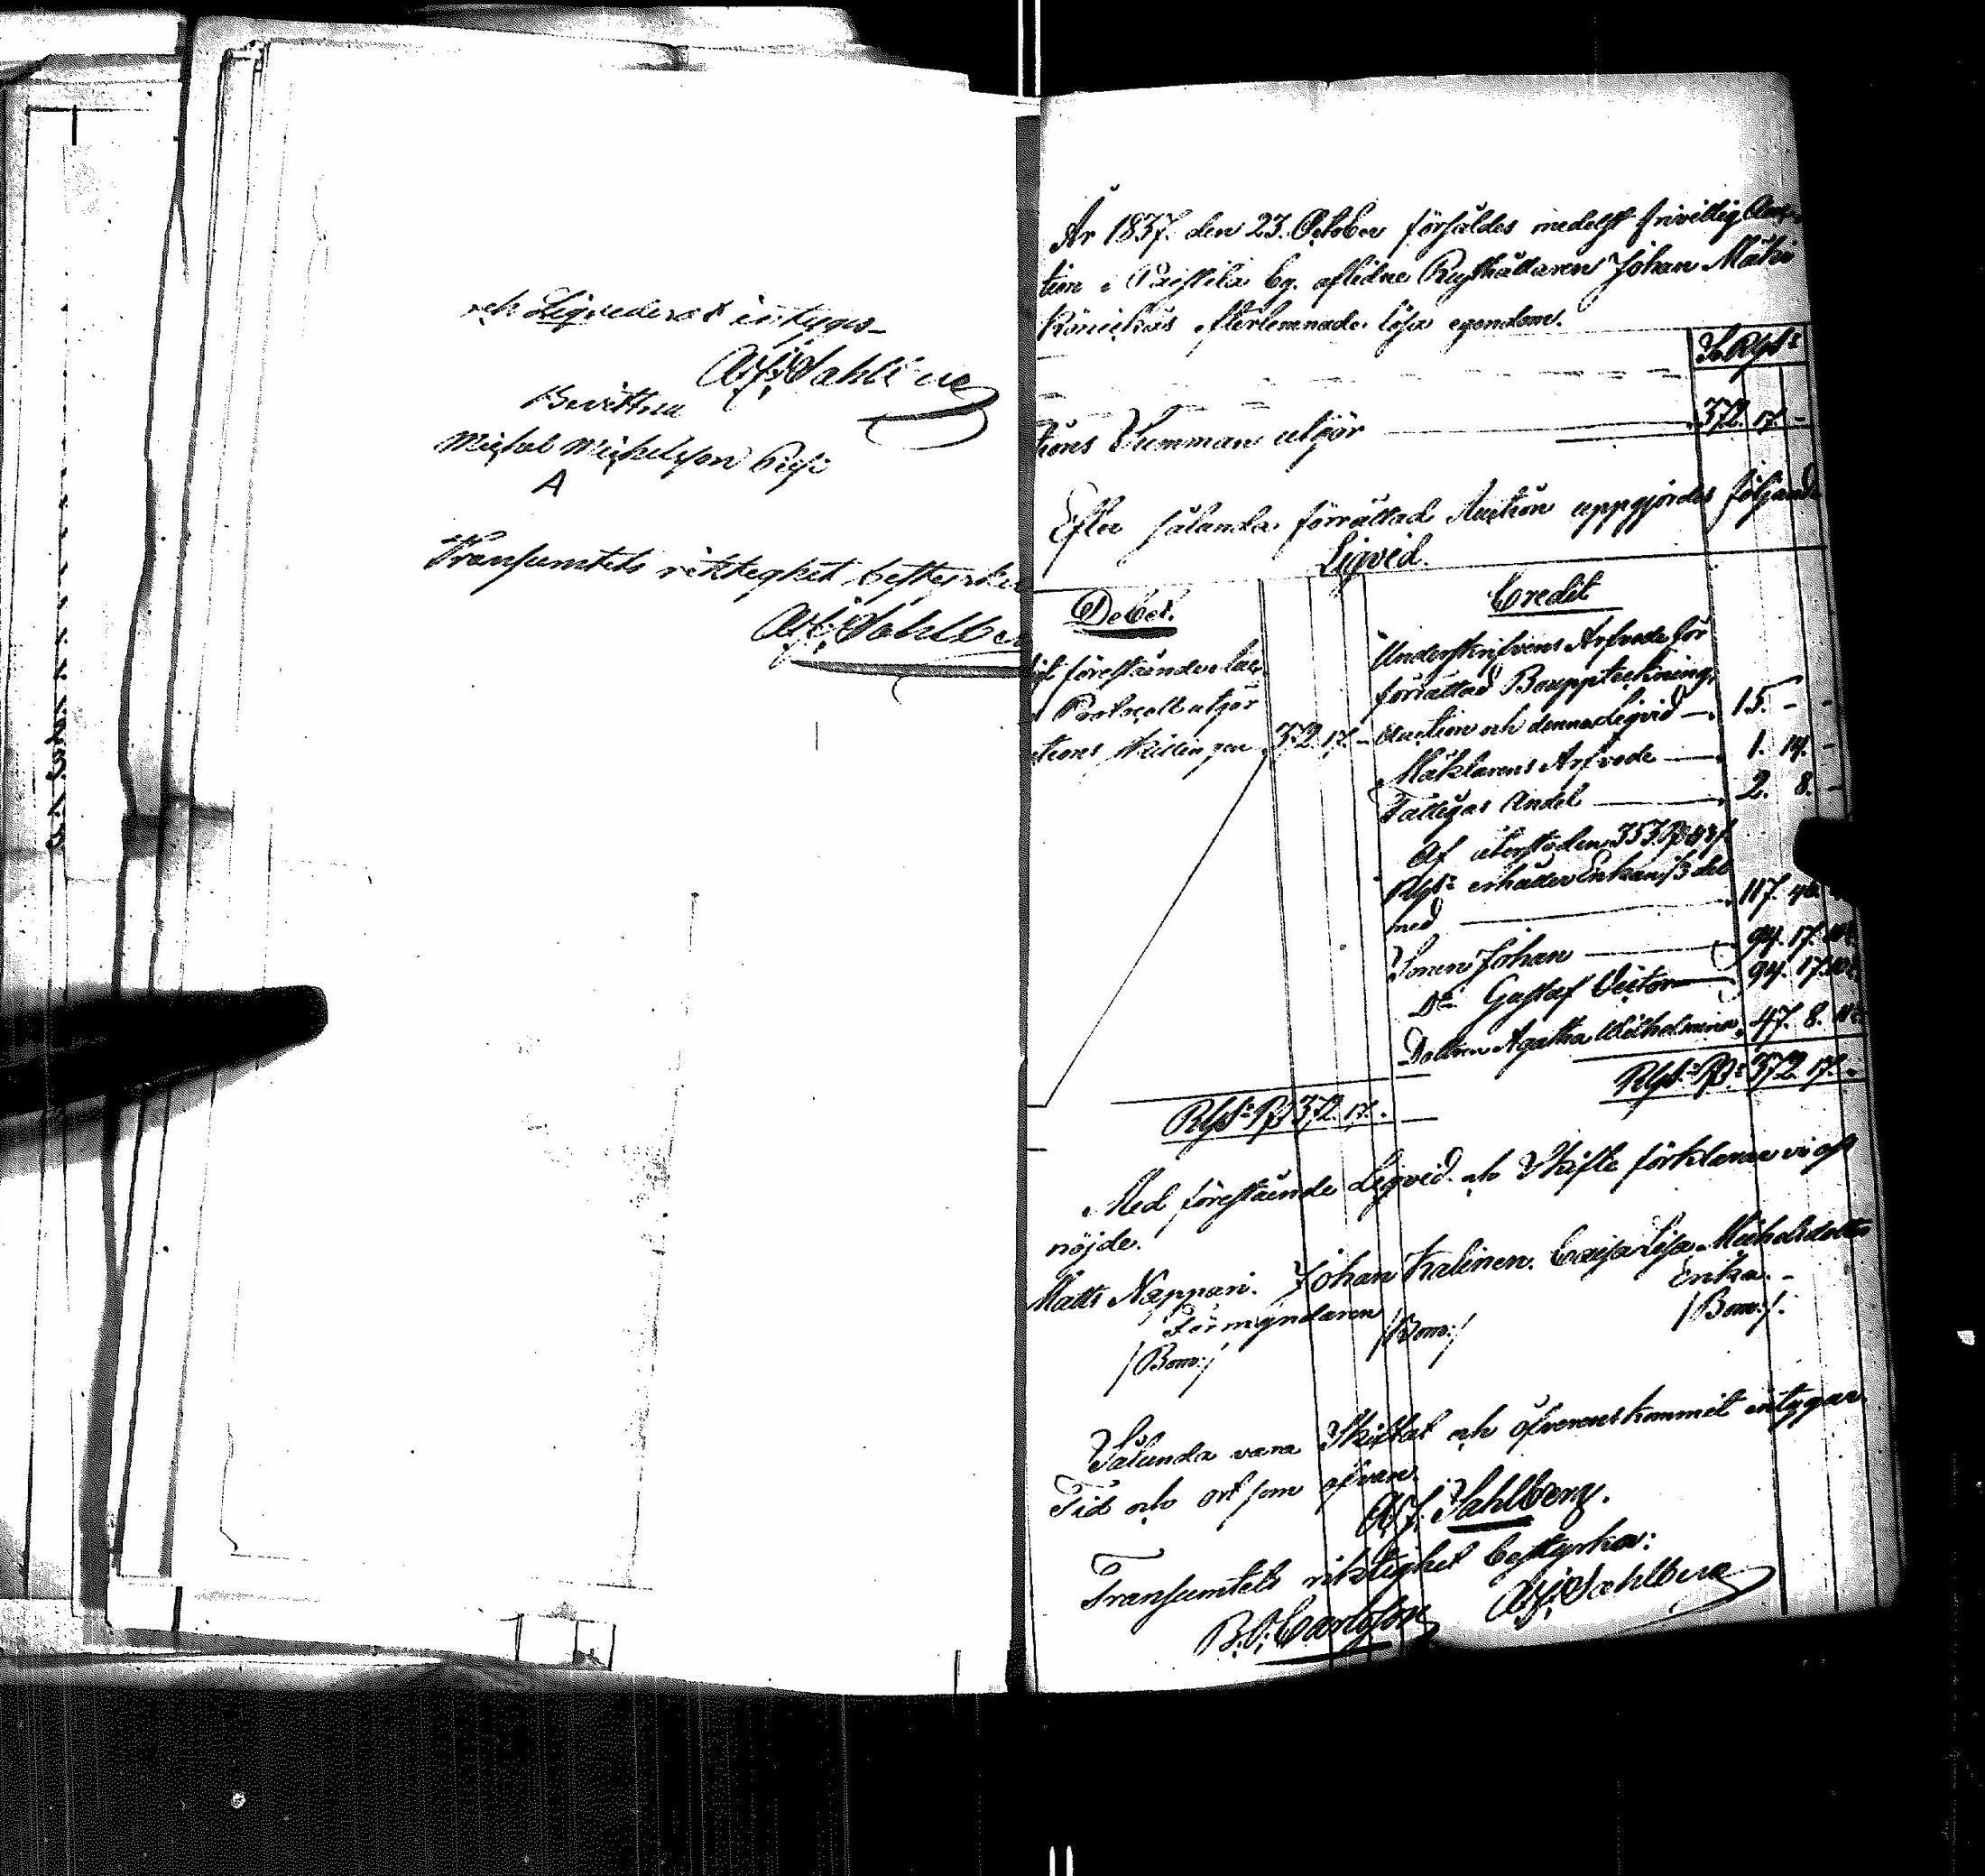 och Liqvederat intygas
A.F. Sahlberg
Bevittna
Michel Michelsson
A
Transumtets riktighet bestyrker
A.F. Sahlberg
År 1837. den 23. October försåldes medelst frivillig Auc-
tion i Paistila by. aflidne Rusthållaren Johan Mäki
efterlemnade lösa egendom.
S. Rgs:
tions Summan utgör 372. 17. -
Efter sålunda förrättad Auction uppgjordes följande
Liqvid.
Debet.
förestående
Protocoll utgör
ctions skillingen 372. 17. -
Credit
Underskrifvens Arfvode för
förrättad Bouppteckning,
Auction och denna Liqvid 15. - -
Mäklarens Arfvode 1. 14. -
Fattigas Andel 2. 8. -
Af återstoden 353
Rgs: erhåller Enkan 1/3 del
med 117.
Sonen Johan 94. 17.
Do Gustaf Victor 94. 17.
Dottren Agatha Wilhelmina 47. 8.
Rgs: R: 372. 17. -
Rgs: R: 372. 17. -
Med förestående Liqvid och Skifte förklarar vi oss
nöjde.
Matts Nappari. Johan Kalinen. Caisa Lisa Michelsdotter
Förmyndaren Enka. -
/Bom:/ /Bom:/ /Bom:/.
Sålunda vara Skiftat och öfverenskommit intygar.
Tid och ort som ofvan.
A.F. Sahlberg.
Transumtets riktighet bestyrka:
B. Carlsson A.F. Sahlberg